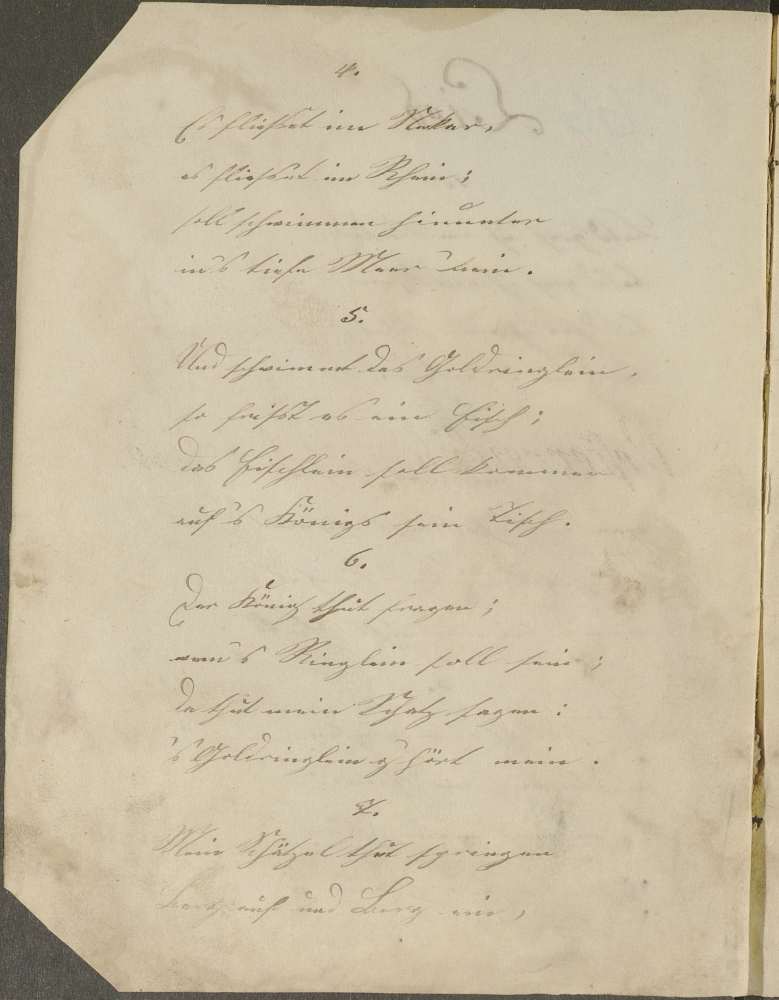 4.
Es fließet im Nekar,
es fließet im Rhein;
soll schwimmen hinunter
in's tiefe Meer hein.
5.
Und schwimmt das Goldringlein,
so frißt es ein Fisch;
das Fischlein soll kommen
auf's Königs sein Tisch.
6.
Der König thut fragen;
wem's Ringlein soll sein;
da thut mein Schatz sagen:
's Goldringlein g'hört mein.
7.
Mein Schätzel thut springen
Berg auf und Berg ein,